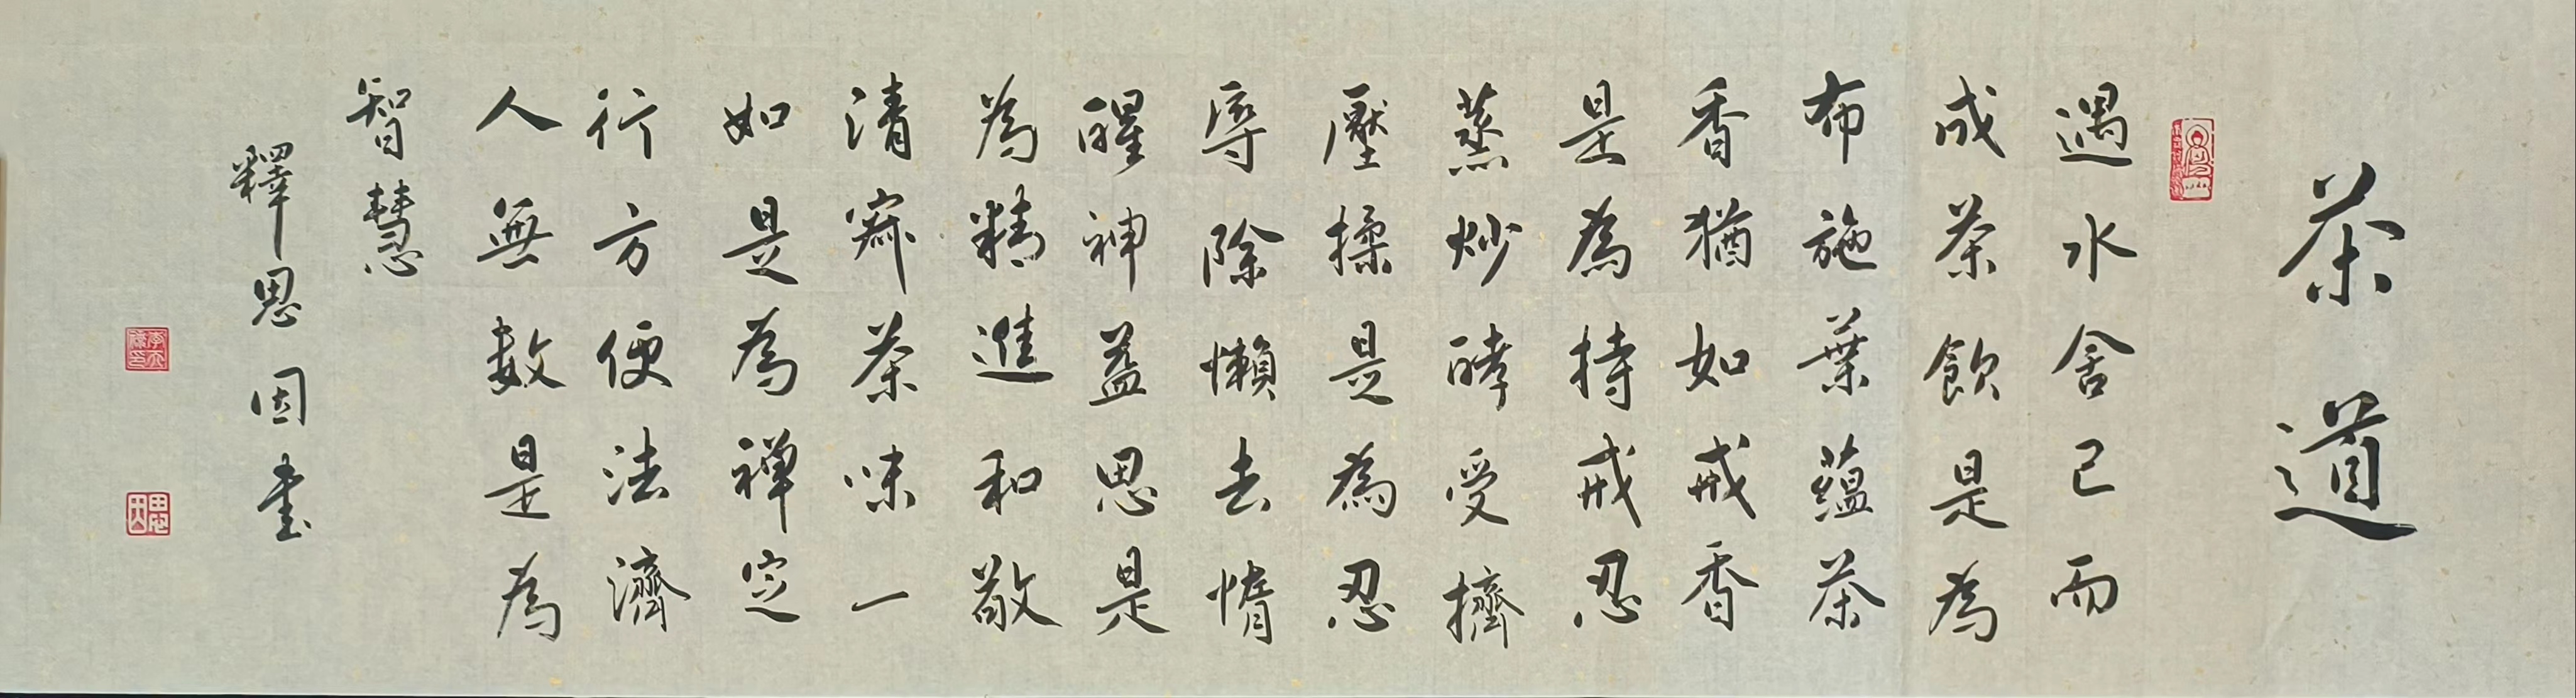 茶道
遇水舍己而
成茶飲是為
布施葉蘊茶
香猶如戒香
是為持戒忍
蒸炒酵受擠
壓揉是為忍
辱除懶去惰
醒神益思是
為精進和敬
清寂茶味一
如是為禪定
行方便法濟
人無數是為
智慧
釋思因書
思因